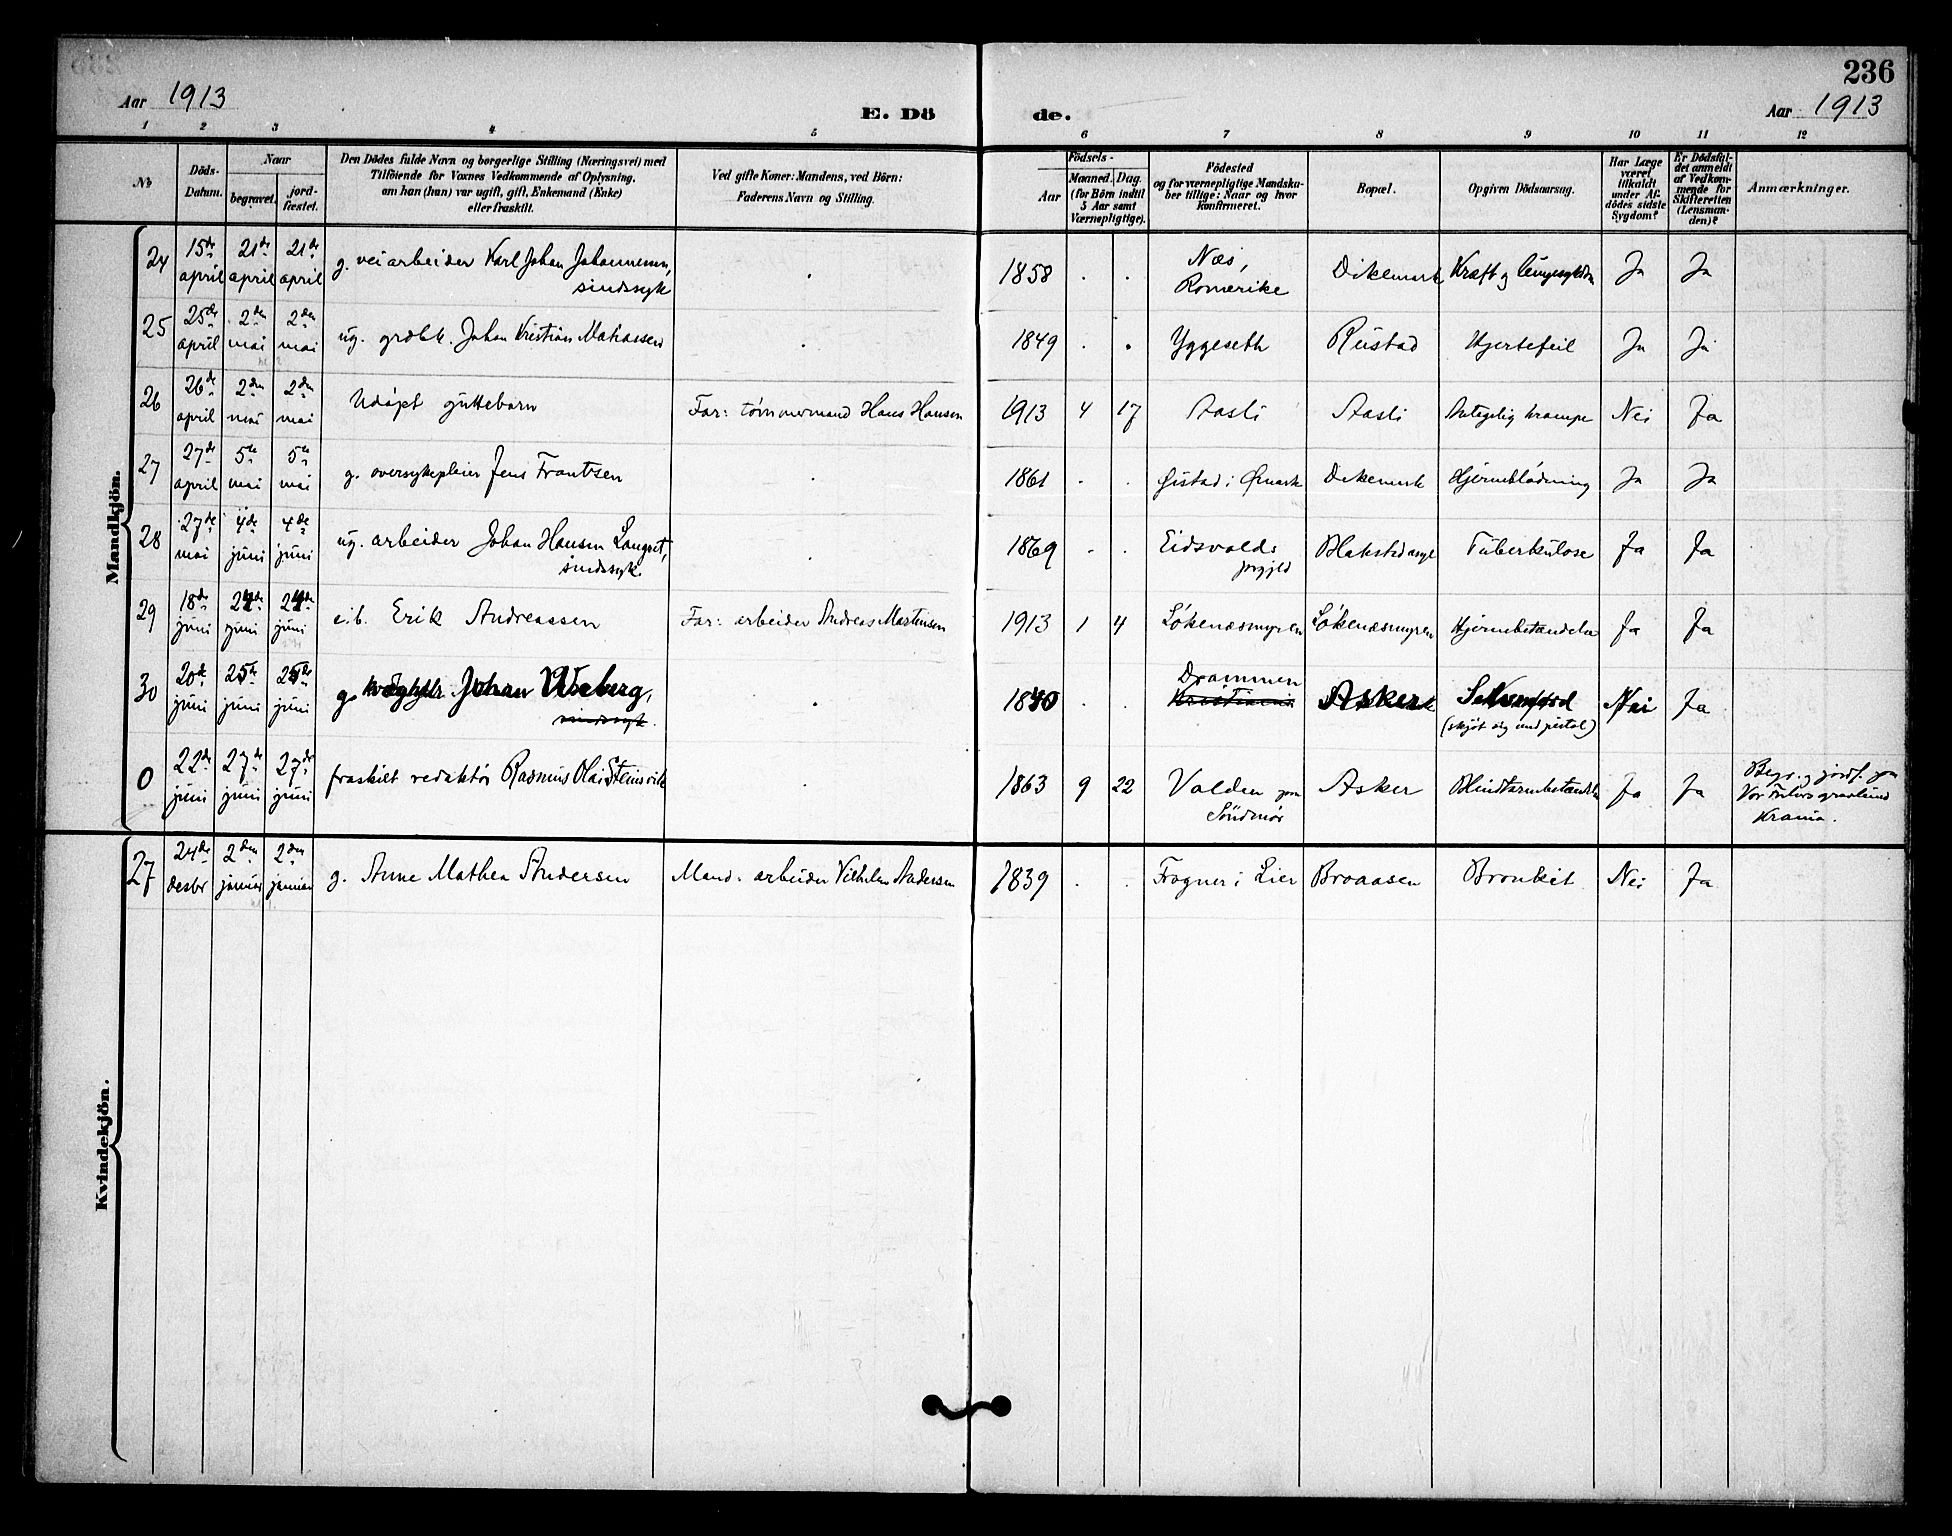 236
Aar 1913
E. Döde.
Aar 1913
1 2 3 4 5 6 7 8 9 10 11 12
No.
Döds-Datum.
Naar
begravet.
jordfæstet.
Den Dödes fulde Navn og borgerlige Stilling (Næringsvei) med
Tilföiende for Voxnes Vedkommende af Oplysning,
om han (hun) var ugift, gift, Enkemand (Enke)
eller fraskilt.
Ved gifte Koner: Mandens, ved Börn:
Faderens Navn og Stilling.
Födsels-
Aar
Maaned. Dag.
(for Börn indtil
5 Aar samt
Værnepligtige).
Födested
og for værnepligtige Mandska-
ber tillige: Naar og hvor
konfirmeret.
Bopæl.
Opgiven Dödsaarsag.
Har Læge
været
tilkaldt
under Af-
dödes sidste
Sygdom?
Er Dödsfal-
det anmeldt
af Vedkom-
mende for
Skifteretten
(Lensman-
den)?
Anmærkninger.
Mandkjön.
24 15de april 21de april 21de april g. veiarbeider Karl Johan Johannesen, sindssyk . 1858 . . Næs, Romerike Dikemark Kræft og Ja Ja
25 25de april 2den mai 2den mai ug. Johan Kristian . 1849 . . Yggeseth Rustad Hjertefeil Ja Ja
26 26de april 2den mai 2den mai Udöpt guttebarn Far: tømmermand Hans Hansen 1913 4 17 Aasli Aasli Antagelig krampe Nei Ja
27 27de april 5te mai 5te mai g. oversykepleier Jens Frantzen . 1861 . . i Dikemark Hjerneblödning Ja Ja
28 27de mai 4de juni 4de juni ug. arbeider Johan Hansen Langset, sindssyk. . 1869 . . Eidsvolds prgjld Tuberkulose Ja Ja
29 18de juni 24de juni 24de juni e.b. Erik Andreassen Far: arbeider Andreas Martinsen 1913 1 4 Løkenæsmyren Løkenæsmyren Hjernebetændelse Ja Ja
30 20de juni 25de juni 25de juni g. Johan Wiberg, sindssyk. . 1840 . . Drammen Kristiania Asker Selvmord (skjöt sig med pistol) Nei Ja
0 22de juni 27de juni 27de juni fraskilt redaktör Rasmus Olai Steinsvik . 1863 9 22 Volden paa Söndmör Asker Blindtarmbetændelse Ja Ja Begr. og jordf. paa Vor Frelsers gravlund Krania.
Kvindekjön.
27 24de desbr 2den januar 2den januar g. Anne Mathea Andersen Mand: arbeider Vilhelm Andersen 1839 . . Frogner i Lier Braaasen Bronkit Nei Ja